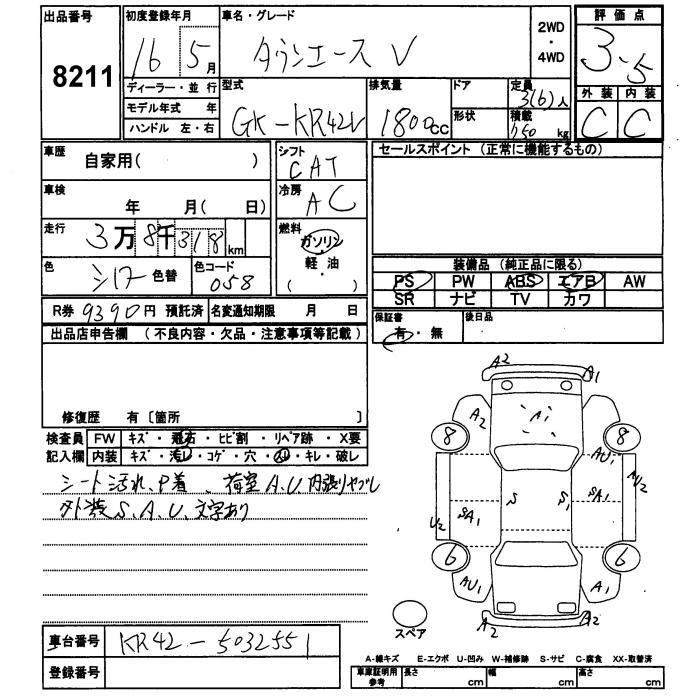 出品番号 初度登録年月 車名・グレード 2WD ・ 4WD 評価点
8211 16 5月 タウンエース V 3.5
ディーラー・並行 型式 排気量 ドア 定員 3(6)人 外装 内装
モデル年式 年
ハンドル 左・右 GK-KR42V 1800cc 形状 積載 750kg C C
車歴 自家用( ) シフト CAT セールスポイント (正常に機能するもの)
車検 年 月( 日) 冷房 AC
走行 3万8千318km 燃料 ガソリン・軽油 ( )
色 シロ 色替 色コード 058 装備品 (純正品に限る)
PS PW ABS エアB AW
SR ナビ TV カワ
R券 9390円 預託済 名変通知期限 月 日 保証書 有・無 後日品
出品店申告欄 (不良内容・欠品・注意事項等記載)
修復歴 有 〔箇所 〕
検査員 FW キズ・飛石・ヒビ割・リペア跡・X要
記入欄 内装 キズ・汚レ・コゲ・穴・スレ・キレ・破レ
シート汚れ、P着、荷室A.U.内張りヤブレ
外装S.A.U.文字あり
A2 A1
A2 A1
8 8
AU1
U2 SA1 S S1 SA1 AU2
6 6
AU1 A1
A2 A2
スペア
車台番号 KR42-5032551
登録番号
A-線キズ E-エクボ U-凹み W-補修跡 S-サビ C-腐食 XX-取替済
車庫証明用参考 長さ cm 幅 cm 高さ cm